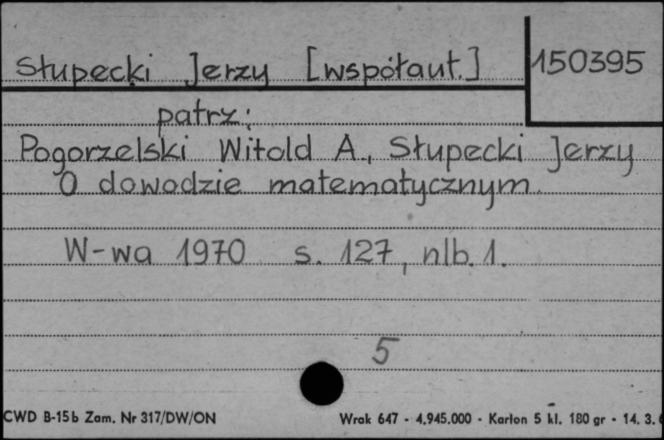 Słupecki Jerzy [współaut.]
150395
patrz:
Pogorzelski Witold A., Słupecki Jerzy
O dowodzie matematycznym.
W-wa 1970 s. 127, nlb. 1.
5
CWD B-15b Zam. Nr 317/DW/ON
Wrak 647 - 4.945.000 - Karton 5 kl. 180 gr - 14. 3.